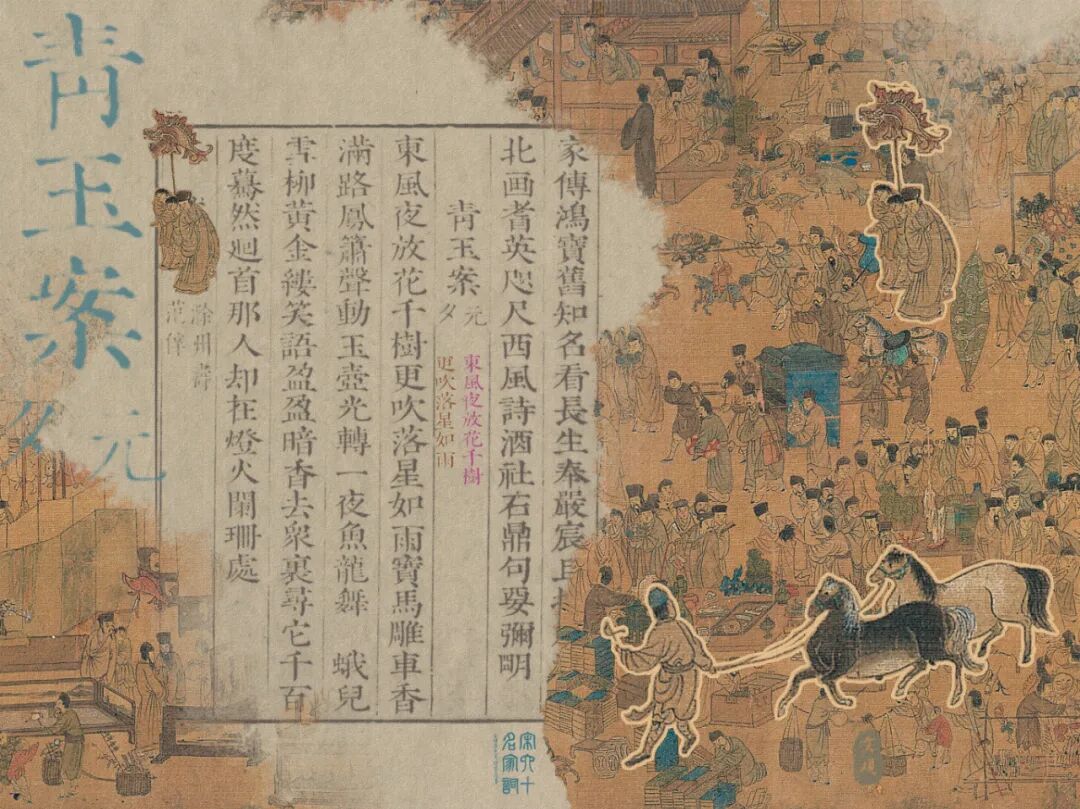 青玉案
元夕
家傳鴻寶舊知名看長生奉嚴宸且
北画耆英咫尺西風詩酒社石鼎句要彌明
青玉案 元夕
東風夜放花千樹
更吹落星如雨
東風夜放花千樹更吹落星如雨寶馬雕車香
滿路鳳簫聲動玉壺光轉一夜魚龍舞 蛾兒
雪柳黃金縷笑語盈盈暗香去衆裏尋它千百
度驀然迴首那人却在燈火闌珊處
滁州壽
范倅
宋六十
名家詞